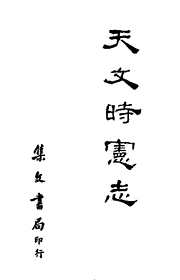 天文時憲志
集文書局印行